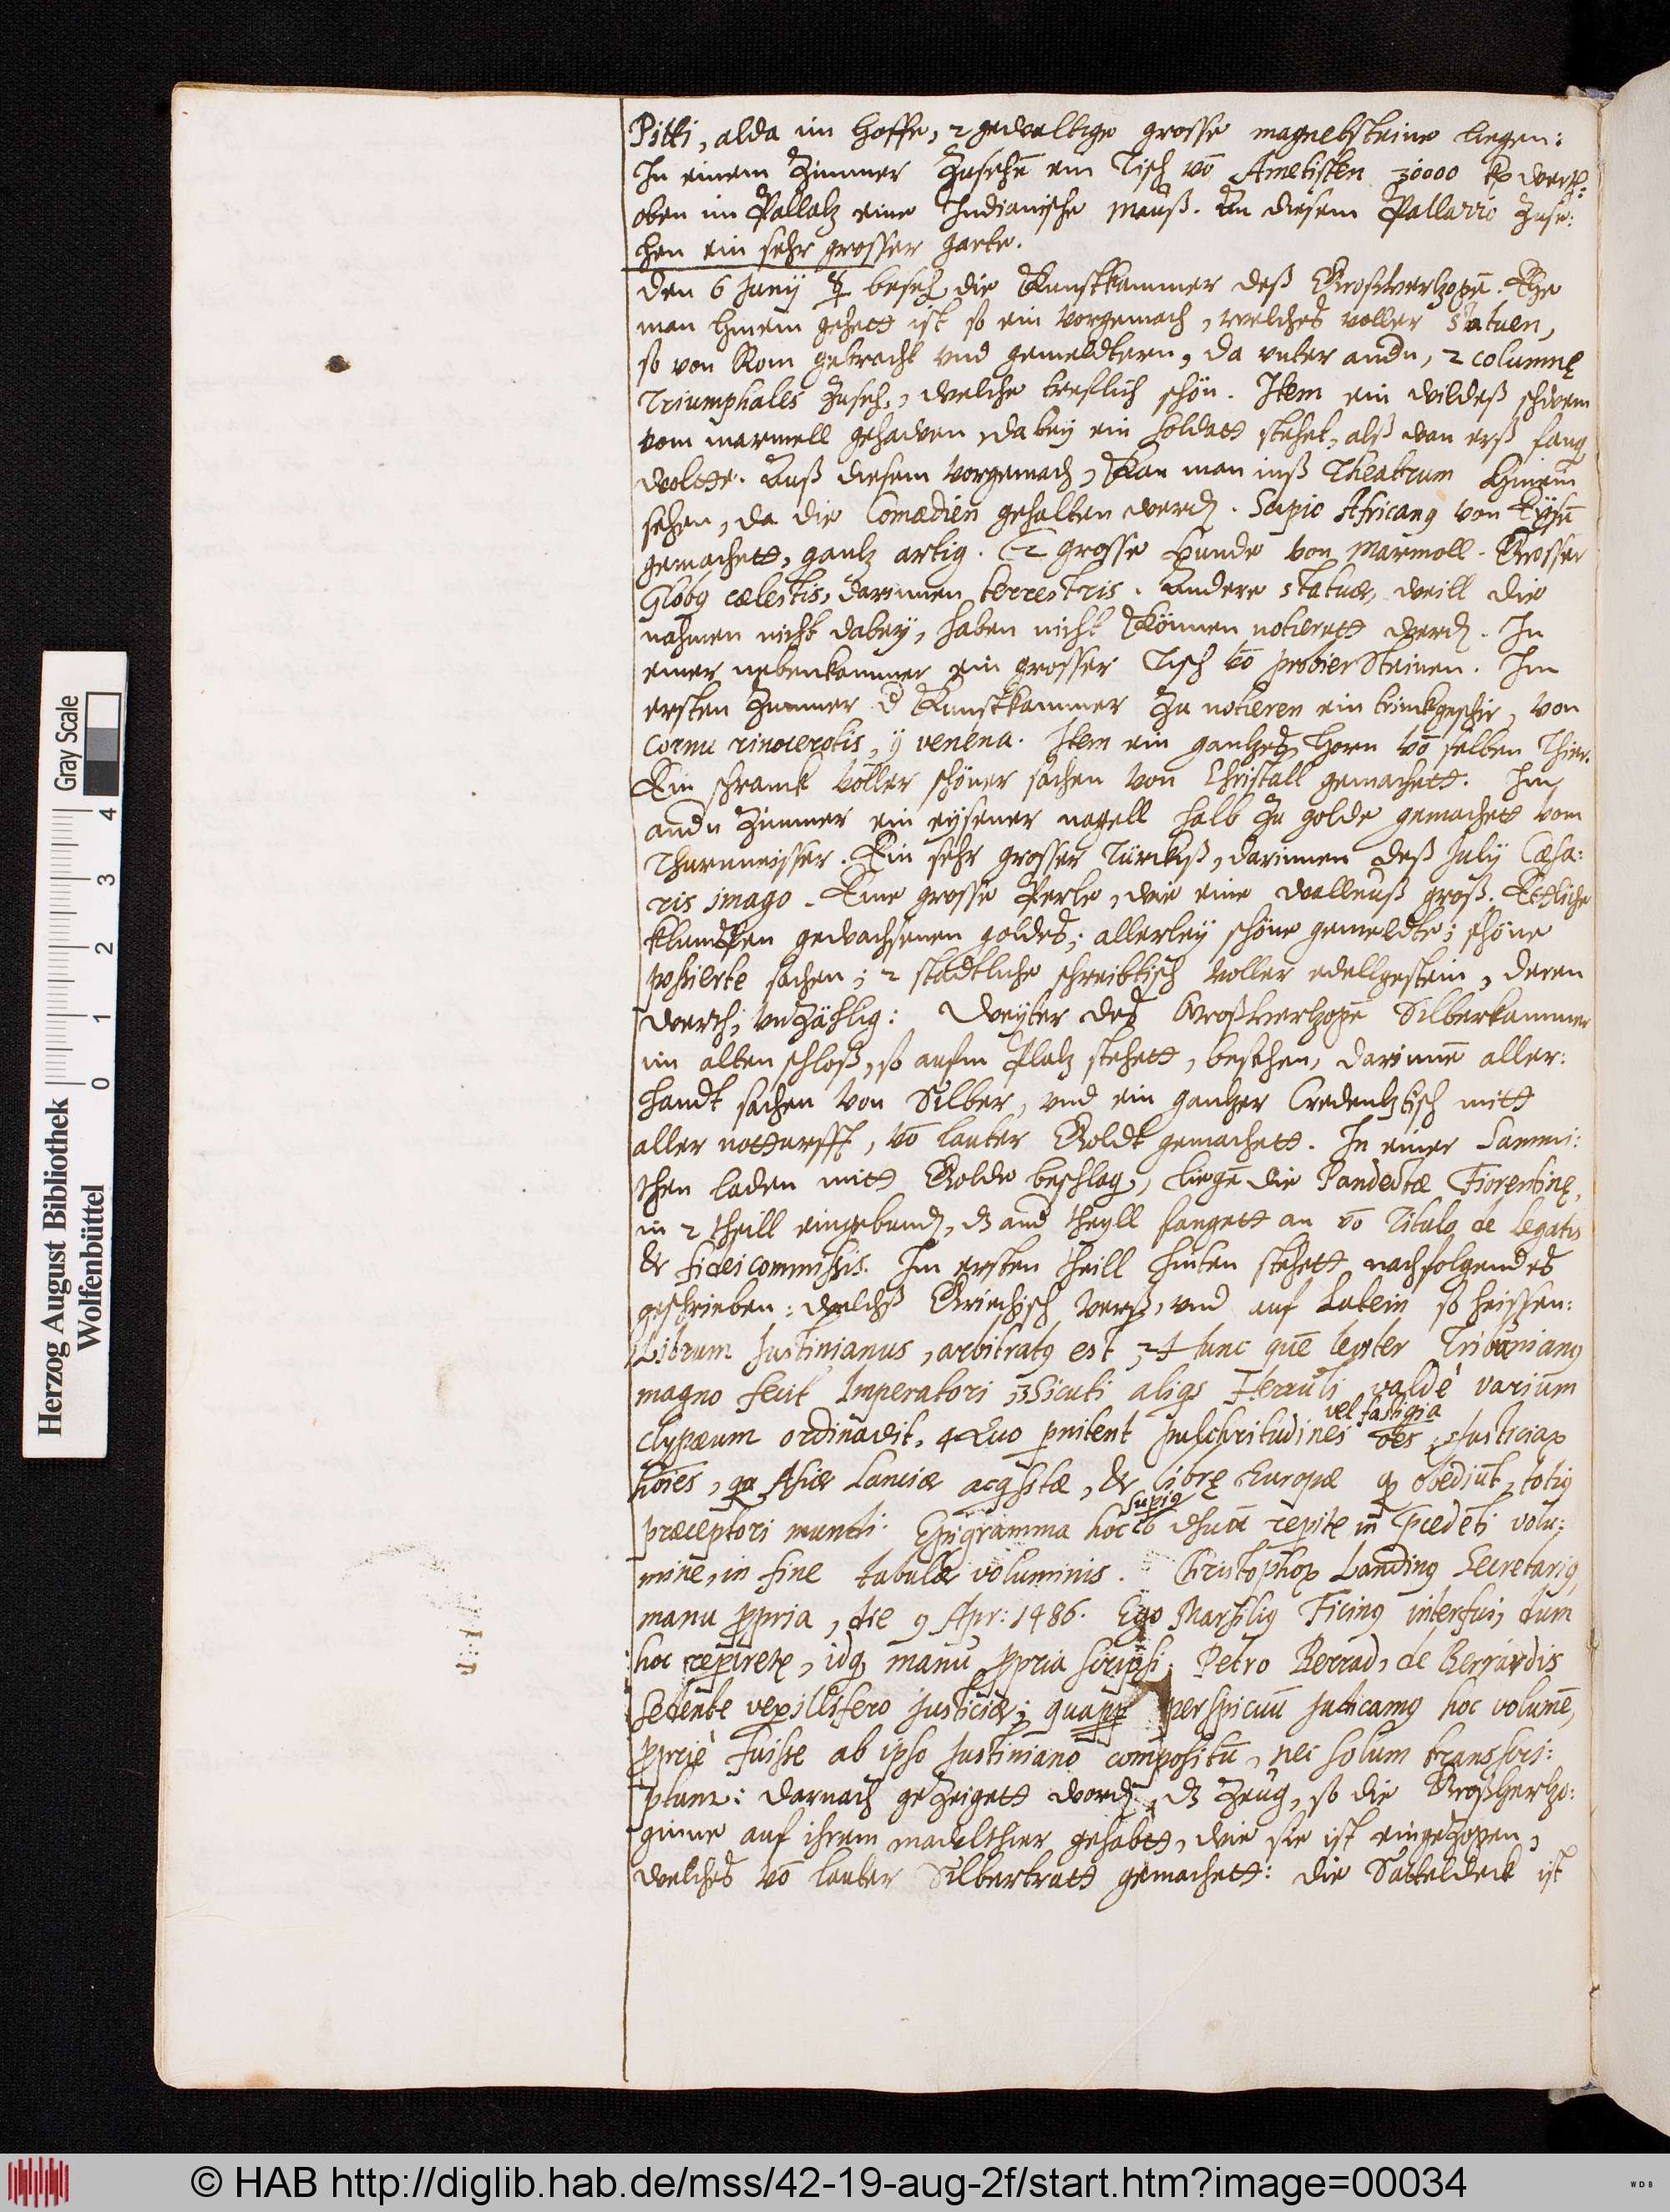 Pitti, alda im Hoffe, 2 gewaltige grosse magnetsteine liegen:
In einem Zimmer Zusehē ein Tisch vō Ametisten 30000 werth:
oben im Pallatz eine Indianische Mauß. An diesem Pallazzo Zuse:
hen ein sehr grosser garte.
Den 6 Junÿ besch die Kunstkammer deß Großhertzogē. Ehe
man hinein gehett ist so ein vorgemach, welches voller Statuen,
so von Rom gebracht vnd gemeldtern, da vnter andn, 2 columnę
Triumphales Zuseh., welche treflich schön. Item ein wildeß schwein
vom marmell gehawen, dabeÿ ein soldatt stehet, alß wan erß fang
woltte. Auß diesem vorgemach, Kan man inß Theatrum hinein
sehen, da die Comœdien gehalten werd. Scipio Africang von Eÿsē
gemachett, gantz artig. 2 grosse Hunde von Marmoll. Grosser
Globg cælestis, darinnen terrestris. Andere statuæ, weill die
nahmen nicht dabeÿ, haben nicht können notierett werd. In
einer nebenkammer ein grosser Tisch vō probier Steinen. Im
ersten Zimmer d Kunstkammer Zu notieren ein trinckgeschir, von
Cornu rinocerotis, ÿ venena. Item ein gantzes Horn vō selben Thier.
Ein schranck voller schöner sachen von Christall gemachett. Im
andn Zimmer ein eÿsener nagell halb Zu golde gemachet vom
Thurnneisser. Ein sehr grosser Türckiß, darinnen deß Julÿ Cæsa:
ris imago. Eine grosse Perle, wie eine wallnuß groß. Ettliche
klumpen gewachsenen goldes; allerleÿ schöne gemeldte; schöne
possierte sachen; 2 stadtliche schreibtisch voller edellgestein, deren
werth vnzählig: Weÿter des Großhertzogē Silberkammer
im alten schloß, so aufm Platz stehett, besehen, darinnē aller:
handt sachen von Silber, vnd ein gantzer Credentztisch mitt
aller notturfft, vō lauter Goldt gemachett. In einer Sammi:
then laden mitt Golde beschlag, liegē die Pandectæ Fiorentinę,
in 2 theill eingebund, dz and theyll fangett an vō Titulo de legatis
& fideicommissis. Im ersten theill hinten stehett nachfolgendes
geschrieben: welchß Griechisch verß, vnd auf Latein so heissen:
Librum Justinianus, arbitratg est, 2 Hunc quē Triboniang
magno fecit Imperatori 3 Sicuti aligs Herculi valdè varium
vel fastigia
clypæum ordinavit, 4 Quo pnitent pulchritudines oēs Justiciaꝝ
hōies, Asiæ Lanciæ acqsitæ, & librę Europæ q obediūt, totig
supig
præceptori mundi. Epigramma hoc repite in Pcedēti volu:
mine, in fine tabulæ voluminis. Christophoꝝ Landing Secretarig,
manu ppria, die 9 Apr: 1486. Ego Marsilig Ficing interfui, dum
hoc repiretꝝ, idq manu ppria scripsi. Petro Berrad, de Berrardis
sedente vexillifero Justiciæ; quapp perspicuū judicamg hoc volumē,
pprie fuisse ab ipso Justiniano compositū, nec solum transscri:
ptum: Darnach geZeigett word, dz Zeug, so die Großhertzo:
ginne auf ihrem mawlthier gehabtt, wie sie ist eingeZogen,
welches vō lauter Silbertratt gemachett: die Satteldeck ist
Herzog August Bibliothek
Wolfenbüttel
Gray Scale
0 1 2 3 4
© HAB http://diglib.hab.de/mss/42-19-aug-2f/start.htm?image=00034
WDB